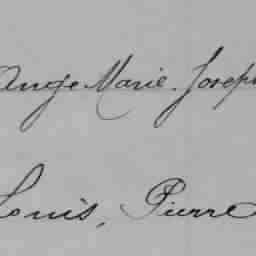 Ange Marie Joseph
Louis, Pierre